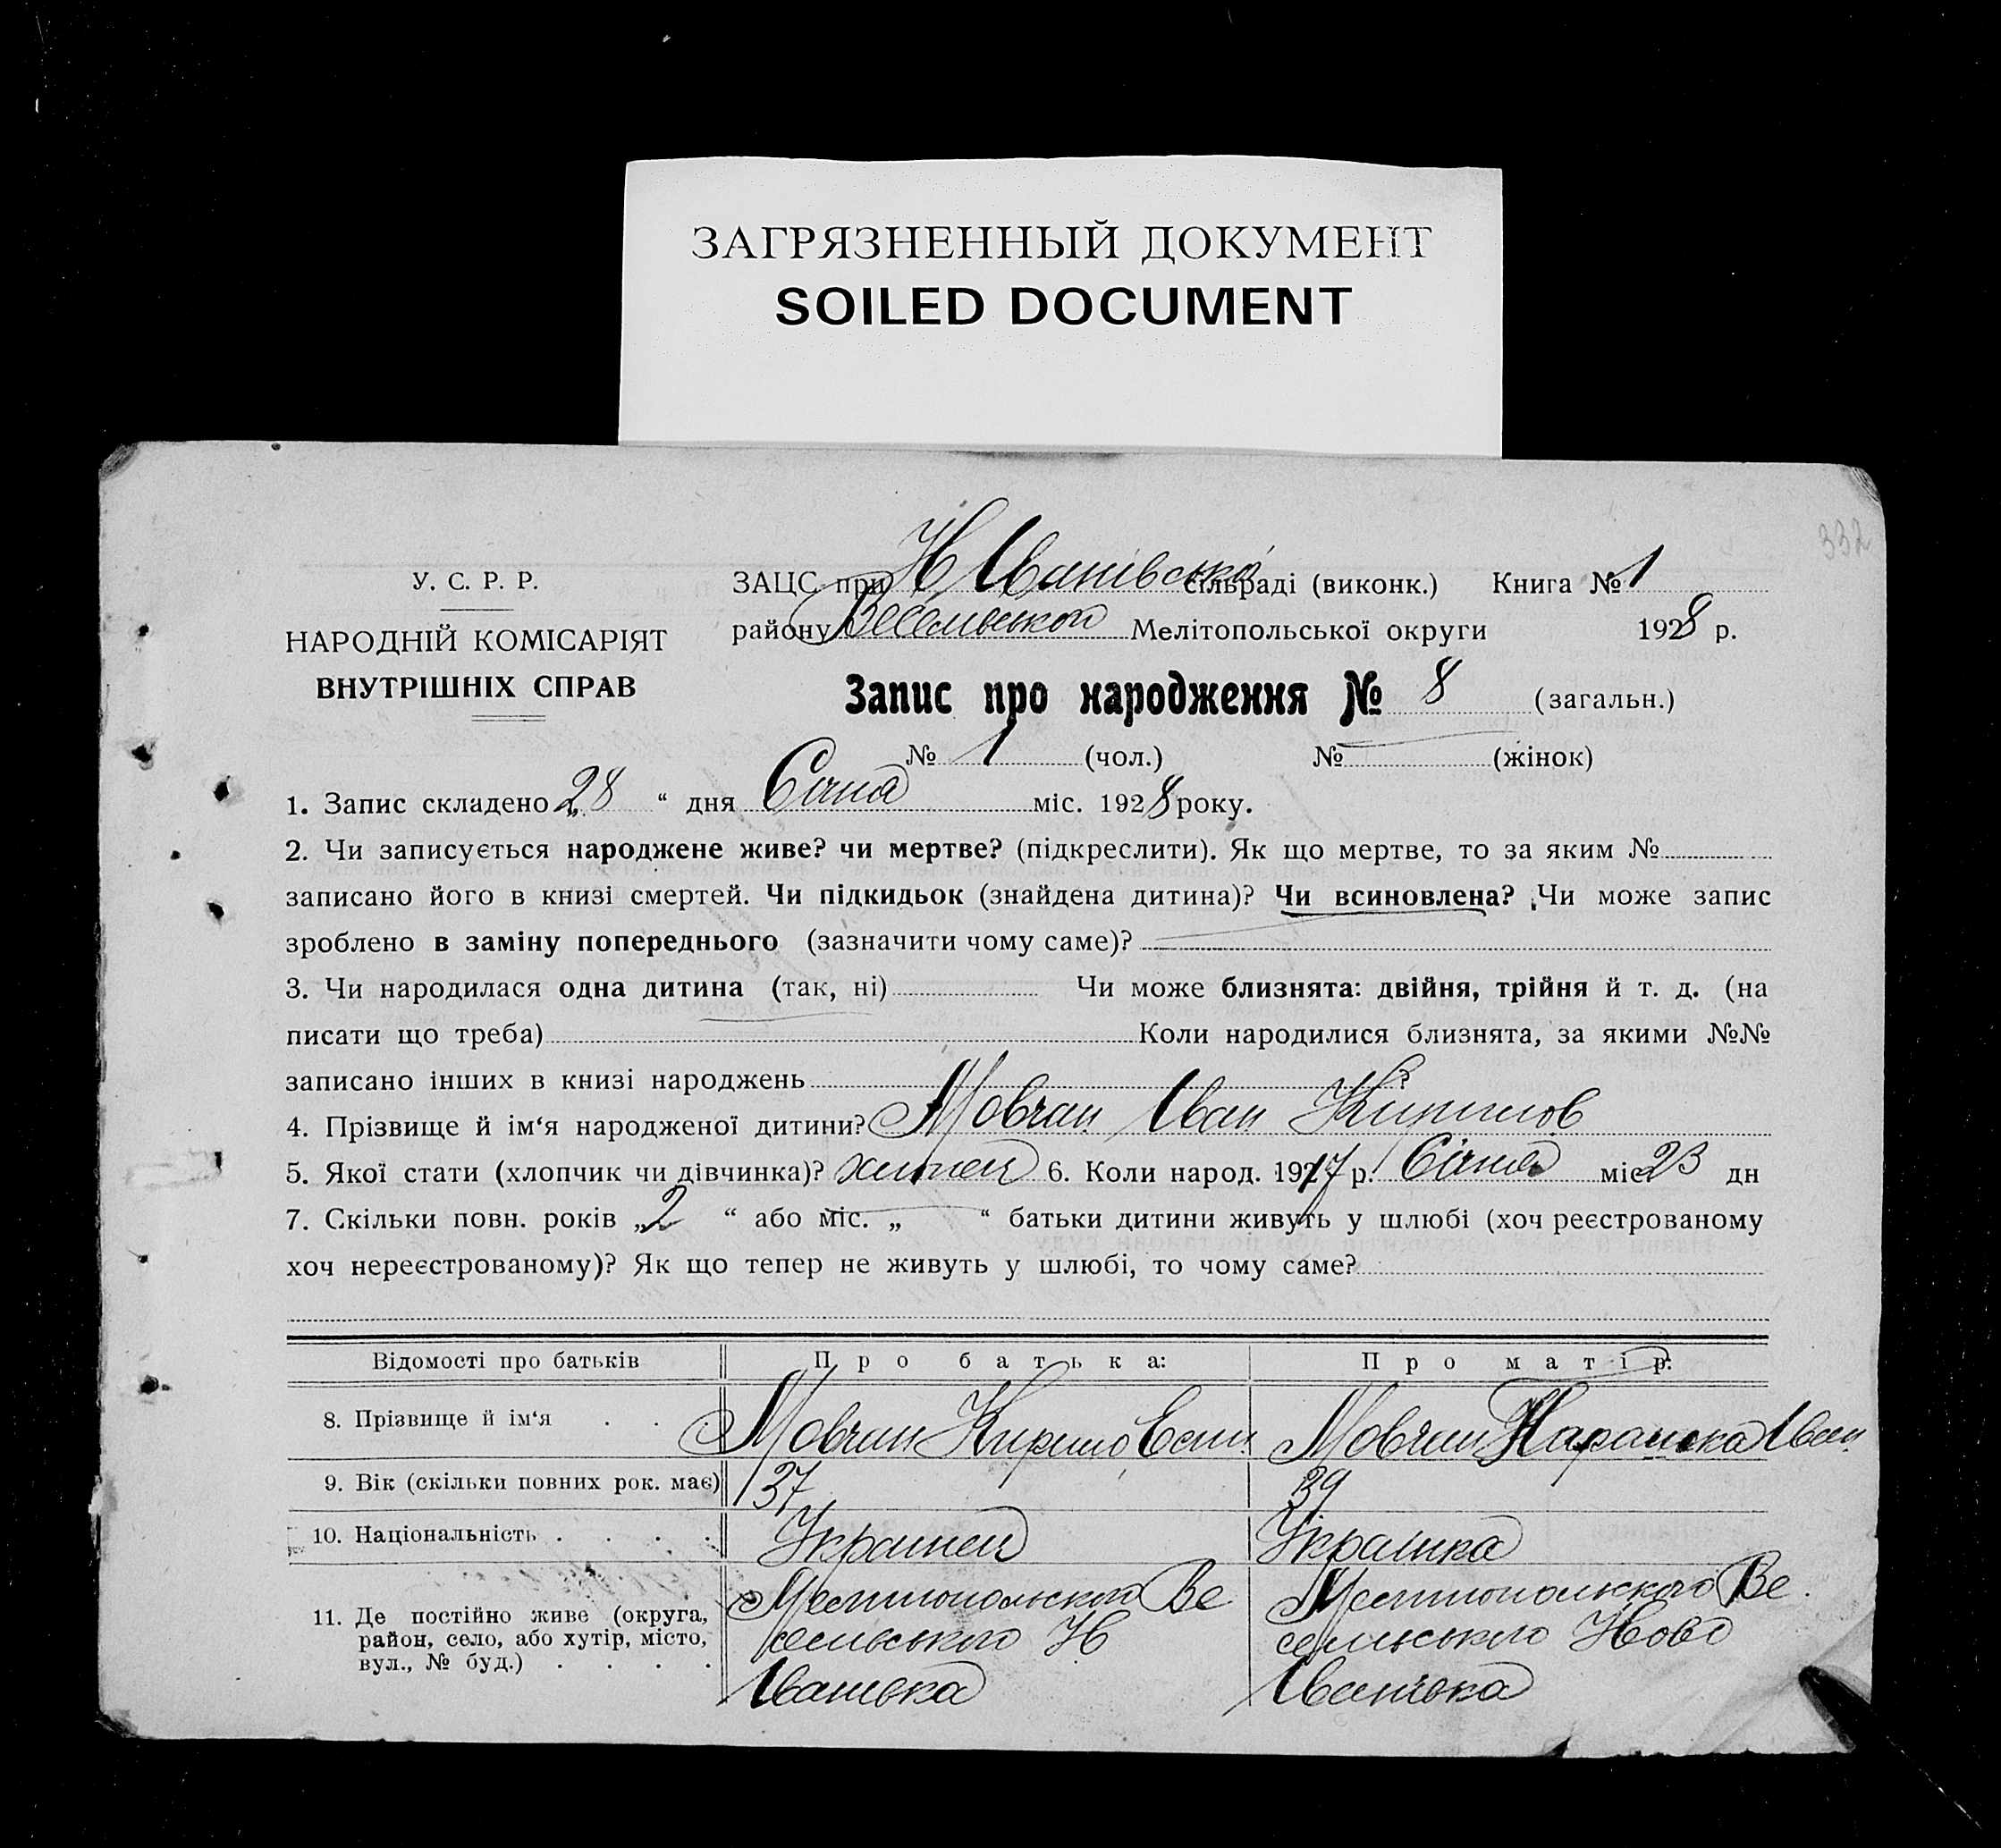 ЗАГРЯЗНЕННЫЙ ДОКУМЕНТ
SOILED DOCUMENT
332
У. С. Р. Р.
НАРОДНІЙ КОМІСАРІЯТ
ВНУТРІШНІХ СПРАВ
ЗАЦС при Н Іванівські сільраді (виконк.) Книга № 1
району Весельської Мелітопольської округи 1928 р.
Запис про народження № 8 (загальн.)
№ 1 (чол.) № (жінок)
1. Запис складено „28 “ дня Січня міс. 1928 року.
2. Чи записується народжене живе? чи мертве? (підкреслити). Як що мертве, то за яким №
записано його в книзі смертей. Чи підкидьок (знайдена дитина)? Чи всиновлена? Чи може запис
зроблено в заміну попереднього (зазначити чому саме)?
3. Чи народилася одна дитина (так, ні) Чи може близнята: двійня, трійня й т. д. (на
писати що треба) Коли народилися близнята, за якими №№
записано інших в книзі народжень ?
4. Прізвище й ім‘я народженої дитини? Мовчан Іван Кирилов
5. Якої стати (хлопчик чи дівчинка)? 6. Коли народ. 1927 р. Січня міс 23 дн
7. Скільки повн. років „2 “ або міс. „ “ батьки дитини живуть у шлюбі (хоч реєстрованому
хоч нереєстрованому)? Як що тепер не живуть у шлюбі, то чому саме?
Відомості про батьків Про батька: Про матір:
8. Прізвище й ім‘я . . . Мовчан Кирило Мовчан Параска Іван
9. Вік (скільки повних рок. має) 37 39
10. Національність . . . . Українец Українка
11. Де постійно живе (округа, район, село, або хутір, місто, вул., № буд.) . . . .
Мелітопольского Ве
сельського Н
Іванівка
Мелітопольского Ве
сельського Ново
Іванівка